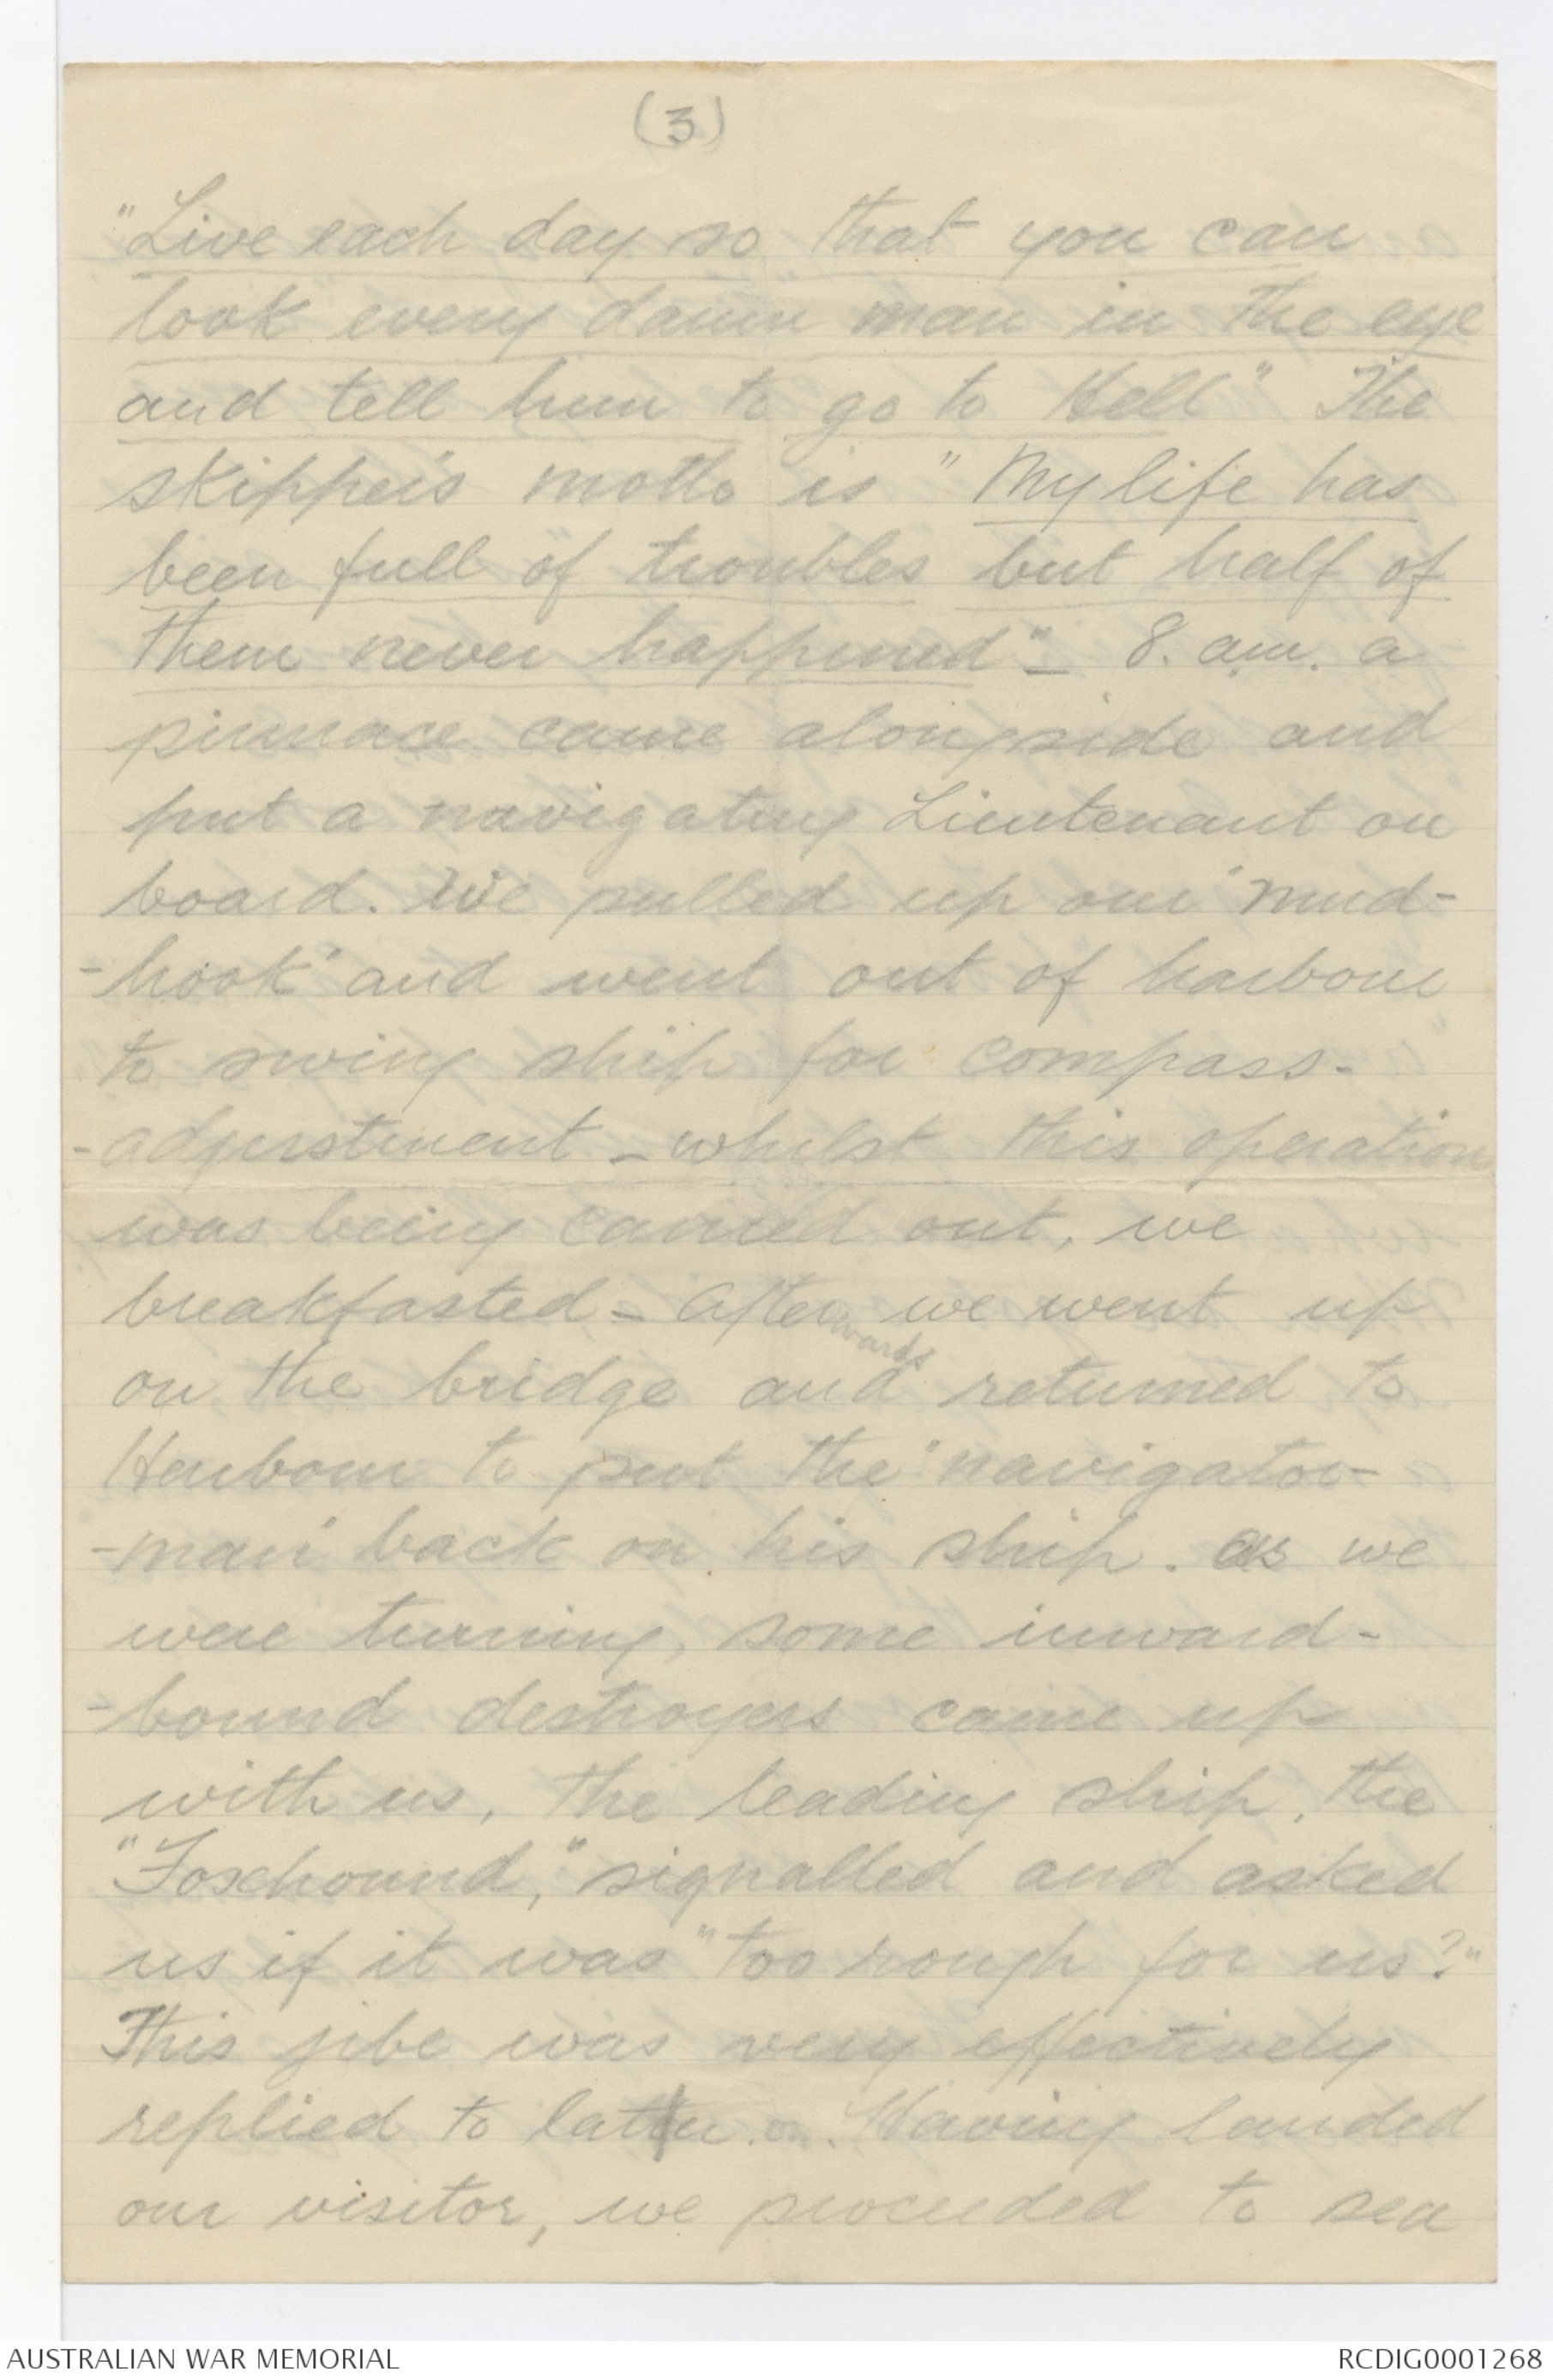 (3)
"Live each day so that you can
look every damn man in the eye
and tell him to go to Hell" The
skipper's motto is "My life has
been full of troubles but half of
them never happened" - 8. a.m. a
pinnace came alongside and
put a navigating Lieutenant on
board. We pulled up our "mud-
-hook" and went out of harbour
to swing ship for compass-
-adjustment - whilst this operation
was being carried out, we
breakfasted - afterwards we went up
on the bridge and returned to
Harbour to put the "navigator-
-man" back on his ship. as we
were turning, some inward-
-bound destroyers came up
with us, the leading ship, the
"Foxhound," signalled and asked
us if it was "too rough for us?"
This jibe was very effectively
replied to later on. Having landed
our visitor, we proceeded to sea
AUSTRALIAN WAR MEMORIAL
RCDIG0001268